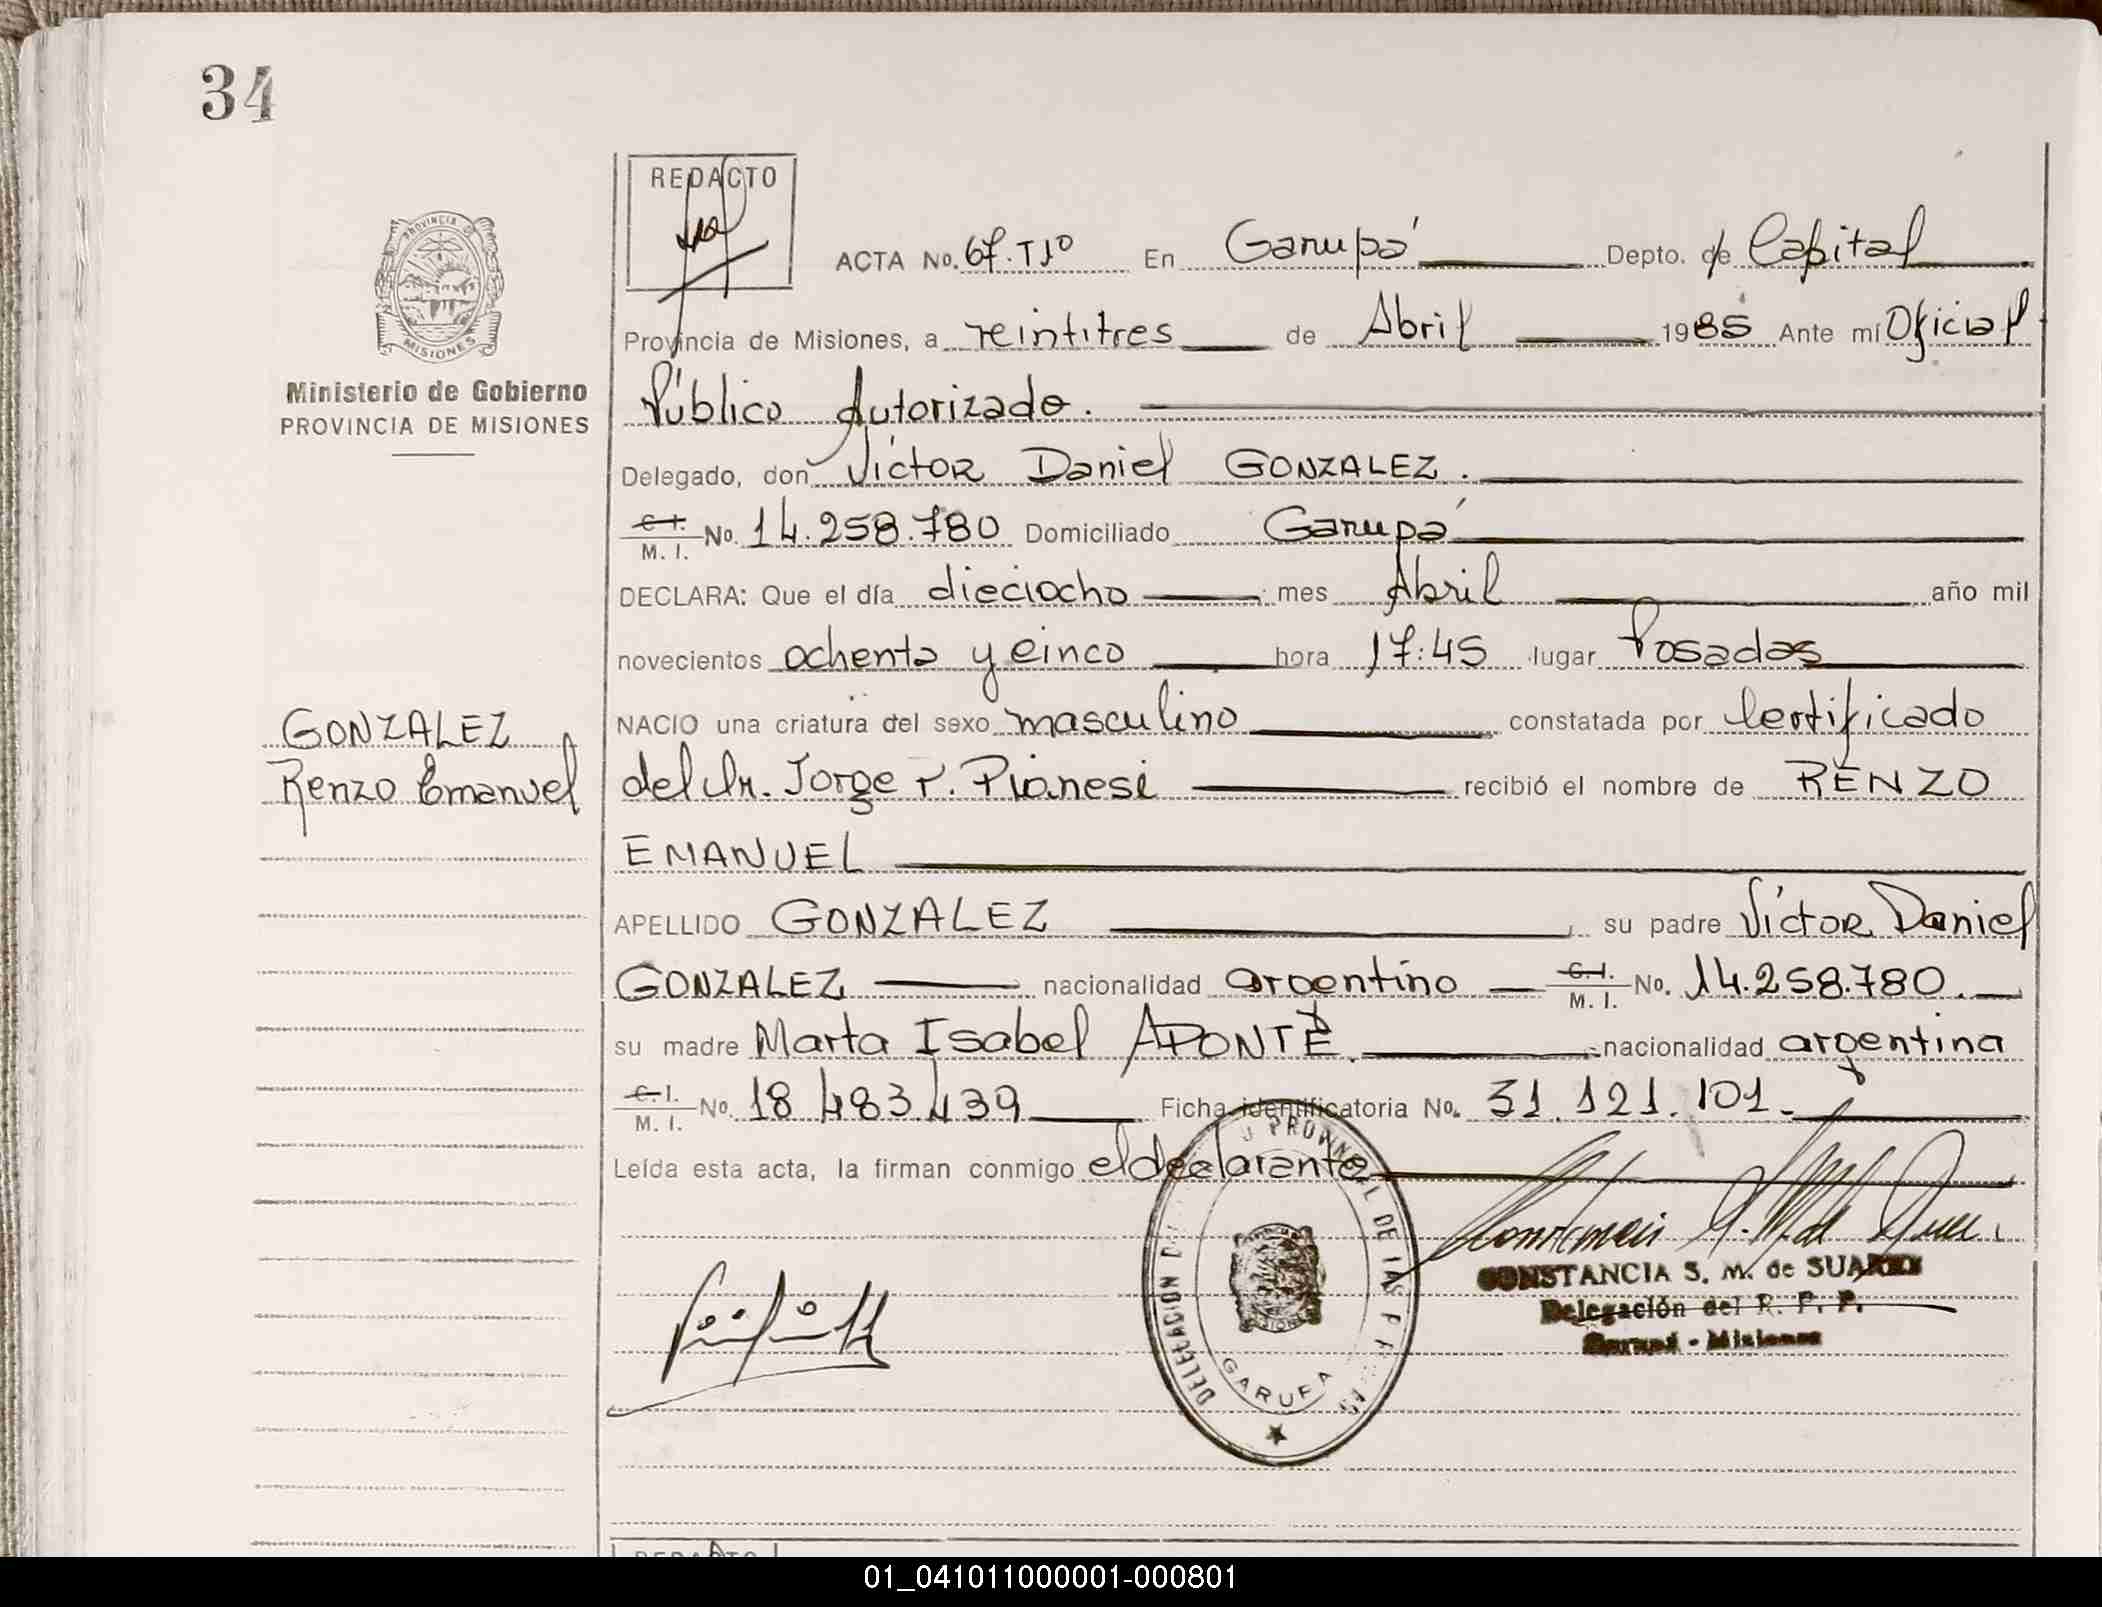 34
REDACTO
PROVINCIA DE
MISIONES
Ministerio de Gobierno
PROVINCIA DE MISIONES
ACTA No. 67. Tº En Garupá Depto. de Capital
Provincia de Misiones, a veintitres de Abril 1985 Ante mí Oficial
Público Autorizado.
Delegado, don Víctor Daniel GONZALEZ.
C. I. M. I. No. 14.258.780 Domiciliado Garupá
DECLARA: Que el día dieciocho mes Abril año mil
novecientos ochenta y cinco hora 17:45 lugar Posadas
NACIO una criatura del sexo masculino constatada por Certificado
del Dr. Jorge P. Pianesi recibió el nombre de RENZO
EMANUEL
GONZALEZ
Renzo Emanuel
APELLIDO GONZALEZ su padre Víctor Daniel
GONZALEZ nacionalidad argentino C. I. M. I. No. 14.258.780.
su madre Marta Isabel APONTE. nacionalidad argentina
C. I. M. I. No. 18.483.439 Ficha identificatoria No. 31.121.101.
Leída esta acta, la firman conmigo el declarante
DELEGACION PROVINCIAL DE LAS
GARUPA
CONSTANCIA S. M. de SUAREZ
Delegación del R. P. P.
Garupá - Misiones
REDACTO
01_041011000001-000801